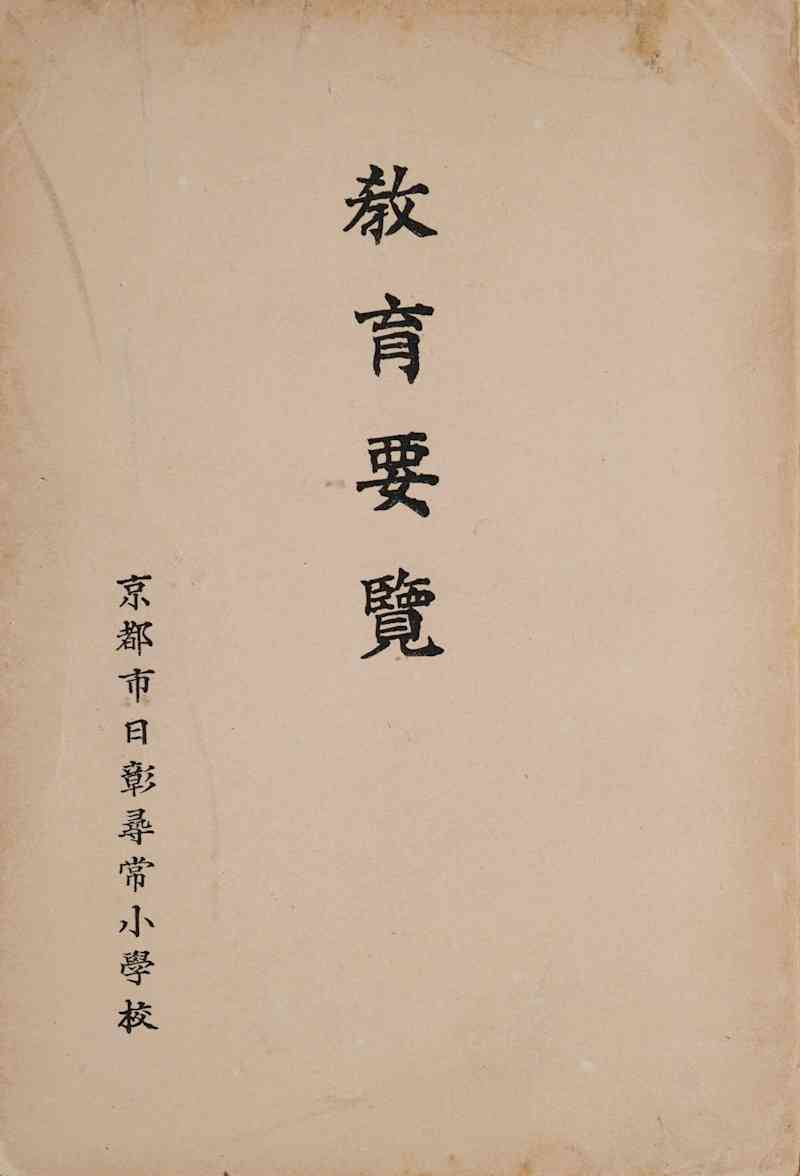 教育要覽
京都市日彰尋常小學校